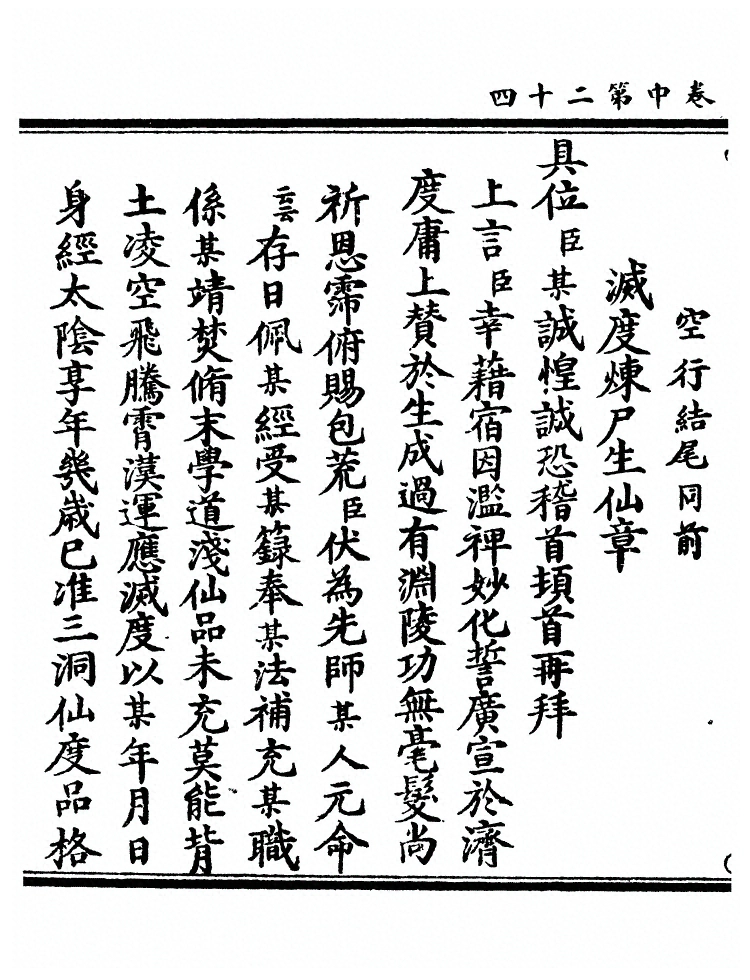 卷中第二十四
空行結尾同前
滅度煉尸生仙章
具位臣某誠惶誠恐稽首頓首再拜
上言臣幸藉宿因濫裨妙化誓廣宣於濟
度庸上賛於生成過有淵陵功無毫髮尚
祈恩霈俯賜包荒臣伏為先師某人元命
云云存日佩某經受某籙奉某法補充某職
係某靖焚脩末學道淺仙品未充莫能背
土凌空飛騰霄漢運應滅度以某年月日
身經太陰享年幾歲已准三洞仙度品格